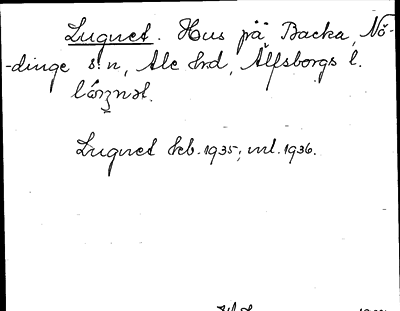 Lugnet. Hus på Backa, Nö-
-dinge s:n, Ale hrd, Älfsborgs l.
Lugnet hcb. 1935; ml. 1936.